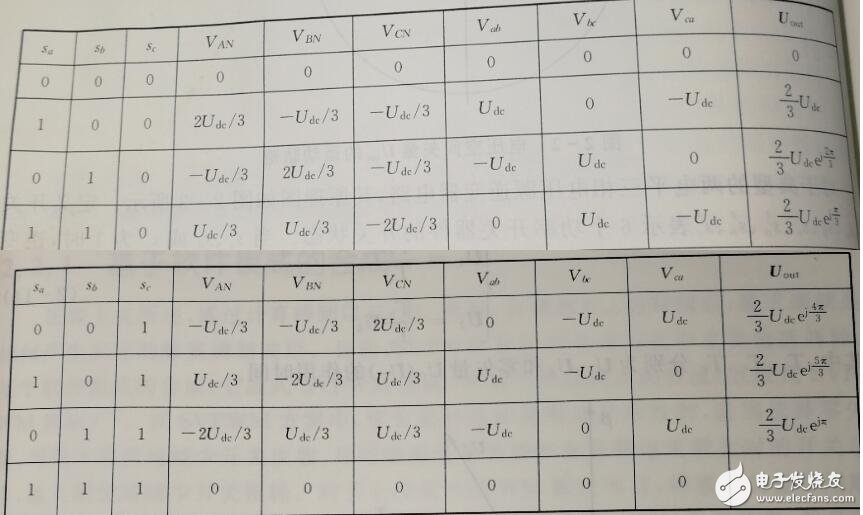 s_a s_b s_c V_AN V_BN V_CN V_ab V_bc V_ca U_out
0 0 0 0 0 0 0 0 0 0
1 0 0 2U_dc/3 -U_dc/3 -U_dc/3 U_dc 0 -U_dc 2/3 U_dc
0 1 0 -U_dc/3 2U_dc/3 -U_dc/3 -U_dc U_dc 0 2/3 U_dc e^{j2π/3}
1 1 0 U_dc/3 U_dc/3 -2U_dc/3 0 U_dc -U_dc 2/3 U_dc e^{jπ/3}
s_a s_b s_c V_AN V_BN V_CN V_ab V_bc V_ca U_out
0 0 1 -U_dc/3 -U_dc/3 2U_dc/3 0 -U_dc U_dc 2/3 U_dc e^{j4π/3}
1 0 1 U_dc/3 -2U_dc/3 U_dc/3 U_dc -U_dc 0 2/3 U_dc e^{j5π/3}
0 1 1 -2U_dc/3 U_dc/3 U_dc/3 -U_dc 0 U_dc 2/3 U_dc e^{jπ}
1 1 1 0 0 0 0 0 0 0
电子发烧友
www.elecfans.com